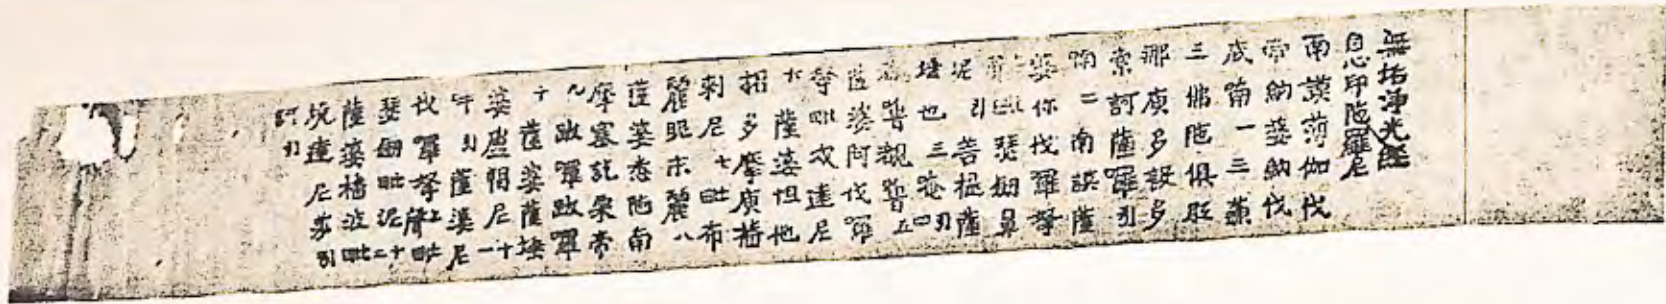 無垢淨光經
自心印陁羅尼
南謨薄伽伐
帝納婆納伐
底喃一三藐
三佛陁俱胝
那庾多設多
索訶薩囉引
喃二南謨薩
婆你伐囉拏
毗瑟劒鼻
泥引菩提薩
埵也三唵四引
覩嚕覩嚕五
薩婆阿伐囉
拏毗戍達尼
六薩婆怛他
揭多摩庾播
剌尼七毗布
麗昵末麗八
薩婆悉陁南
摩塞訖栗帝
九跋囉跋囉
十薩婆薩埵
婆盧羯尼十一
吽引薩婆尼
伐囉拏上聲毗
瑟劒毗泥十二
薩婆播波毗
燒達尼莎引
訶引